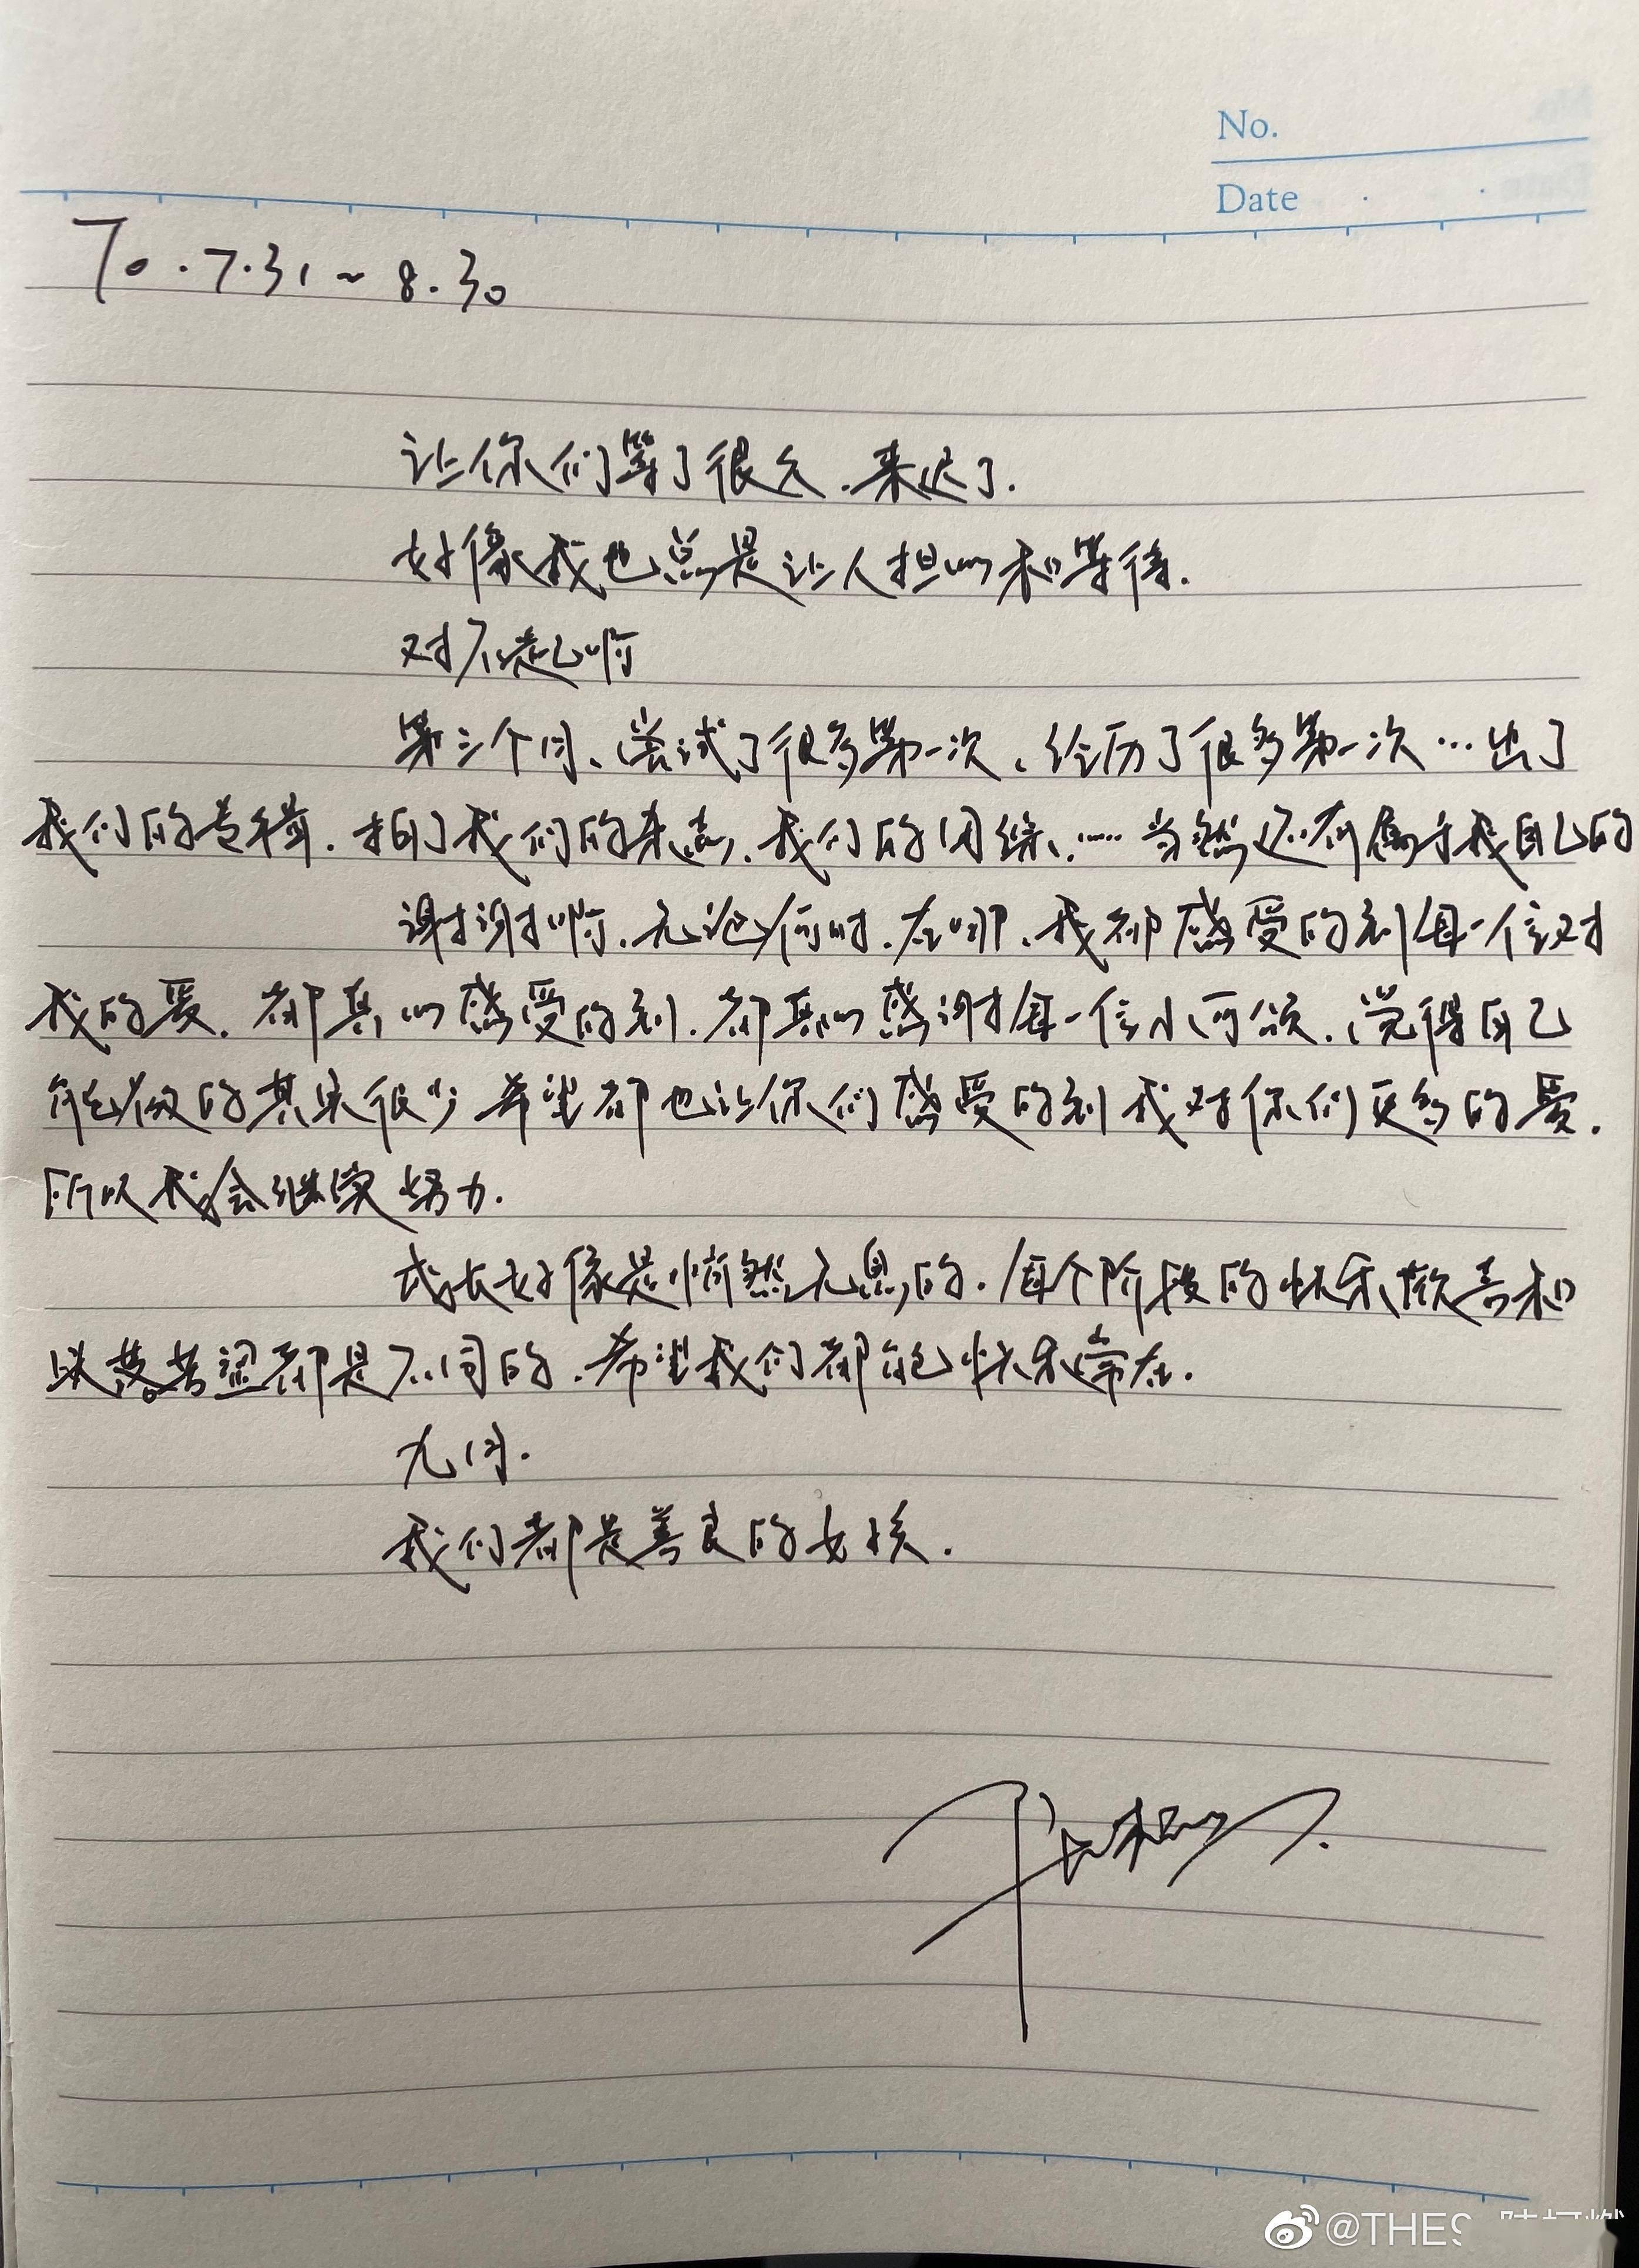 No.
Date
To.7.31~8.30
让你们等了很久.来迟了.
好像我也总是让人担心和等待.
对不起啊
第三个月、尝试了很多第一次、经历了很多第一次…出了
我们的专辑.拍了我们的杂志.我们的团综、……当然还有属于我自己的
谢谢啊、无论何时.在哪、我都感受的到每一位对
我的爱.都真心感受的到.都真心感谢每一位小可颂.觉得自己
能做的其实很少 希望都也让你们感受的到我对你们更多的爱.
所以我会继续努力.
成长好像是悄然无息的.每个阶段的快乐欣喜和
失落若都是不同的.希望我们都能快乐常在.
九月.
我们都是善良的女孩.
@THE9